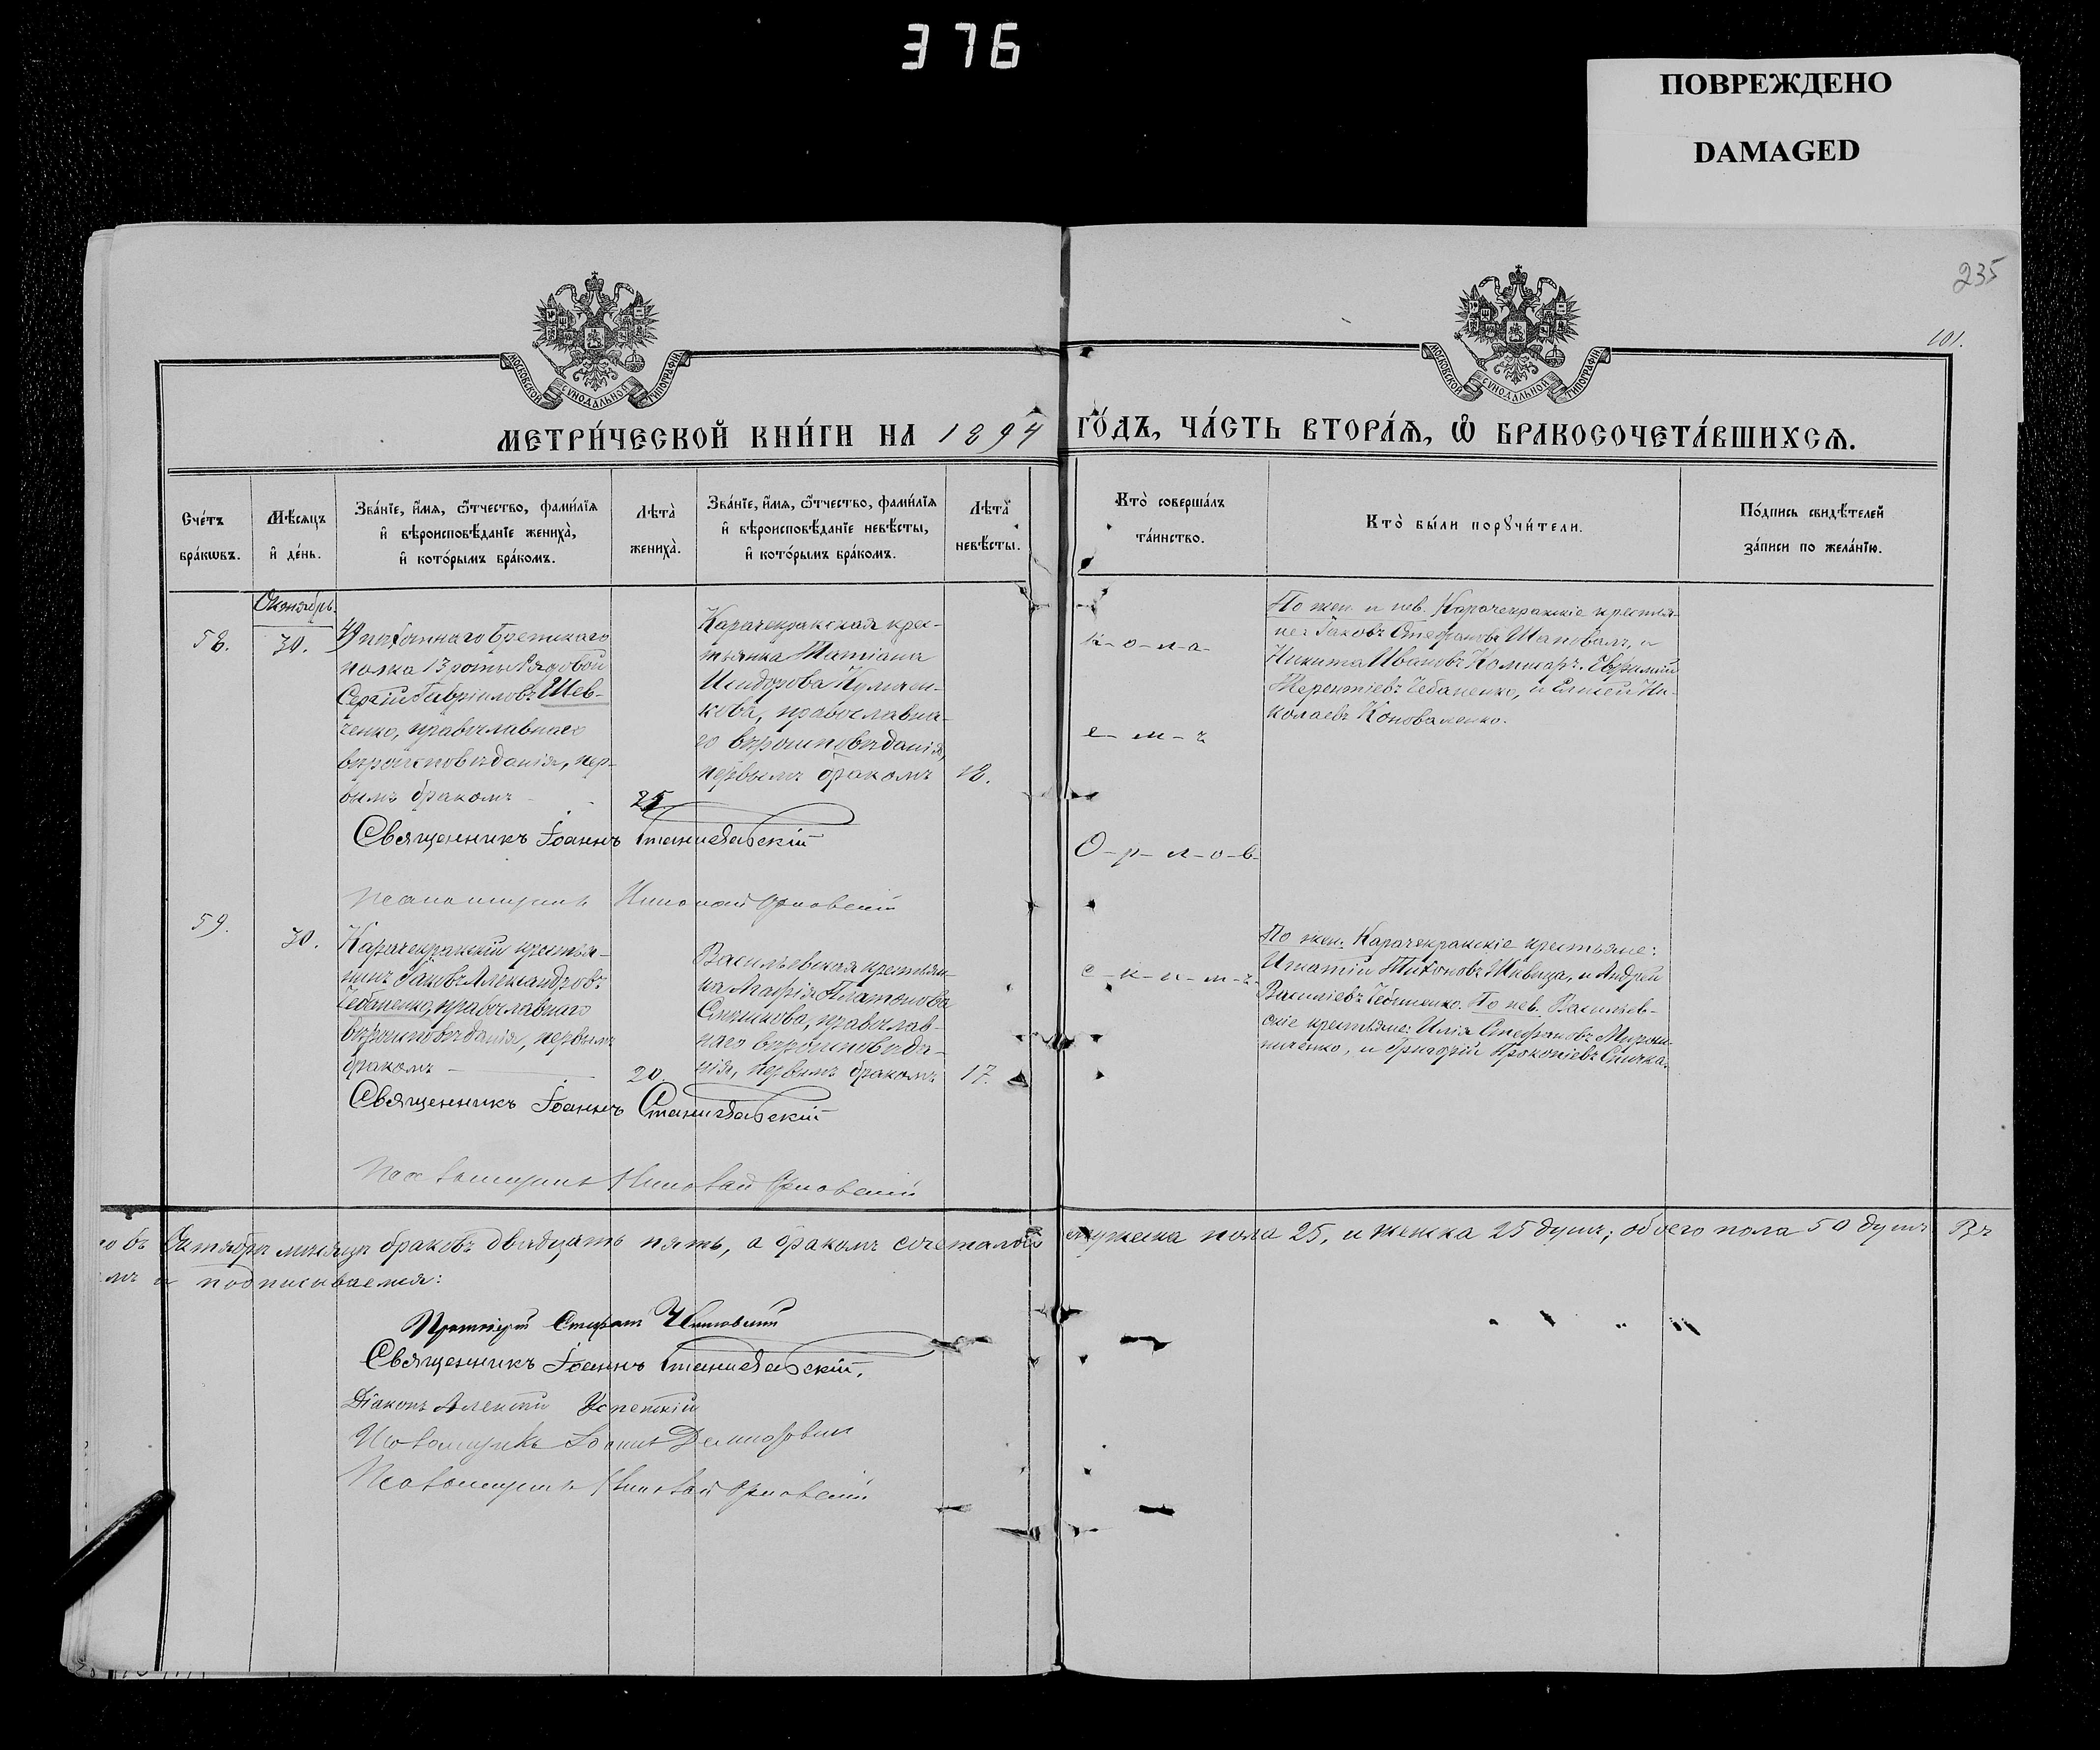 376
ПОВРЕЖДЕНО
DAMAGED
235
101.
МОСКОВСКОЙ СѴНОДАЛЬНОЙ ТИПОГРАФІИ
МОСКОВСКОЙ СѴНОДАЛЬНОЙ ТИПОГРАФІИ
МЕТРИ́ЧЕСКОЙ КНИ́ГИ НА 1894 ГО́ДЪ, ЧА́СТЬ ВТОРА́Ѧ, Ѽ БРАКОСОЧЕТА́ВШИХСѦ.
Сче́тъ
бра́кѡвъ.
Мѣ́сѧцъ
и҆ де́нь.
Зва́нїе, и҆́мѧ, ѻ҆́тчество, фами́лїѧ
и҆ вѣроисповѣ́данїе жениха̀,
и҆ кото́рымъ бра́комъ.
Лѣта̀
жениха̀.
Зва́нїе, и҆́мѧ, ѻ҆́тчество, фами́лїѧ
и҆ вѣроисповѣ́данїе невѣ́сты,
и҆ кото́рымъ бра́комъ.
Лѣта̀
невѣ́сты.
Кто̀ соверша́лъ
та́инство.
Кто̀ бы́ли порꙋчи́тели.
По́дпись свидѣ́телей
за́писи по жела́нїю.
Октябрь
58.
30.
49 пѣхотнаго Брестскаго
полка 13 роты Рядовой
Сергій Гавріиловъ Шев-
ченко, православнаго
вѣроисповѣданія, пер-
вымъ бракомъ
25.
Карачекракская крес-
тьянка Татіана
Исидорова
православна-
го вѣроисповѣданія,
первымъ бракомъ
18.
к-о-л-а-
е-м-ъ
О-р-л-о-в-
с-к-и-м-ъ
По жен. и нев. Карачекракскіе крестья-
не: Іаковъ Стефановъ Шаповалъ, и
Никита Ивановъ Комшаръ. Евфимій
Терентіевъ Чебаненко, и Елисей Ни-
колаевъ Коноваленко.
Священникъ Іоаннъ Станиславскій
Псаломщикъ Николай Орловскій
59.
30.
Карачекракскій крестья-
нинъ Іаковъ Александровъ
Чебаненко, православнаго
вѣроисповѣданія, первымъ
бракомъ
20.
Васильевская крестьян-
ка Марѳія Платонова
православ-
наго вѣроисповѣда-
нія, первымъ бракомъ
17.
По жен. Карачекракскіе крестьяне:
Игнатій Тихоновъ и Андрей
Василіевъ Чебаненко. По нев. Васильев-
скіе крестьяне: Илія Стефановъ Мирош-
ниченко, и Григорій Прокопіевъ Спичка.
Священникъ Іоаннъ Станиславскій
Псаломщикъ Николай Орловскій
го въ Октябрѣ мѣсяцѣ браковъ двадцать пять, а бракомъ сочеталось мужеска пола 25, и женска 25 душъ; обоего пола 50 душъ. Въ
мъ и подписываемся:
Протоіерей Стефанъ
Священникъ Іоаннъ Станиславскій.
Діаконъ Алексій Успенскій
Псаломщикъ Іоаннъ
Псаломщикъ Николай Орловскій